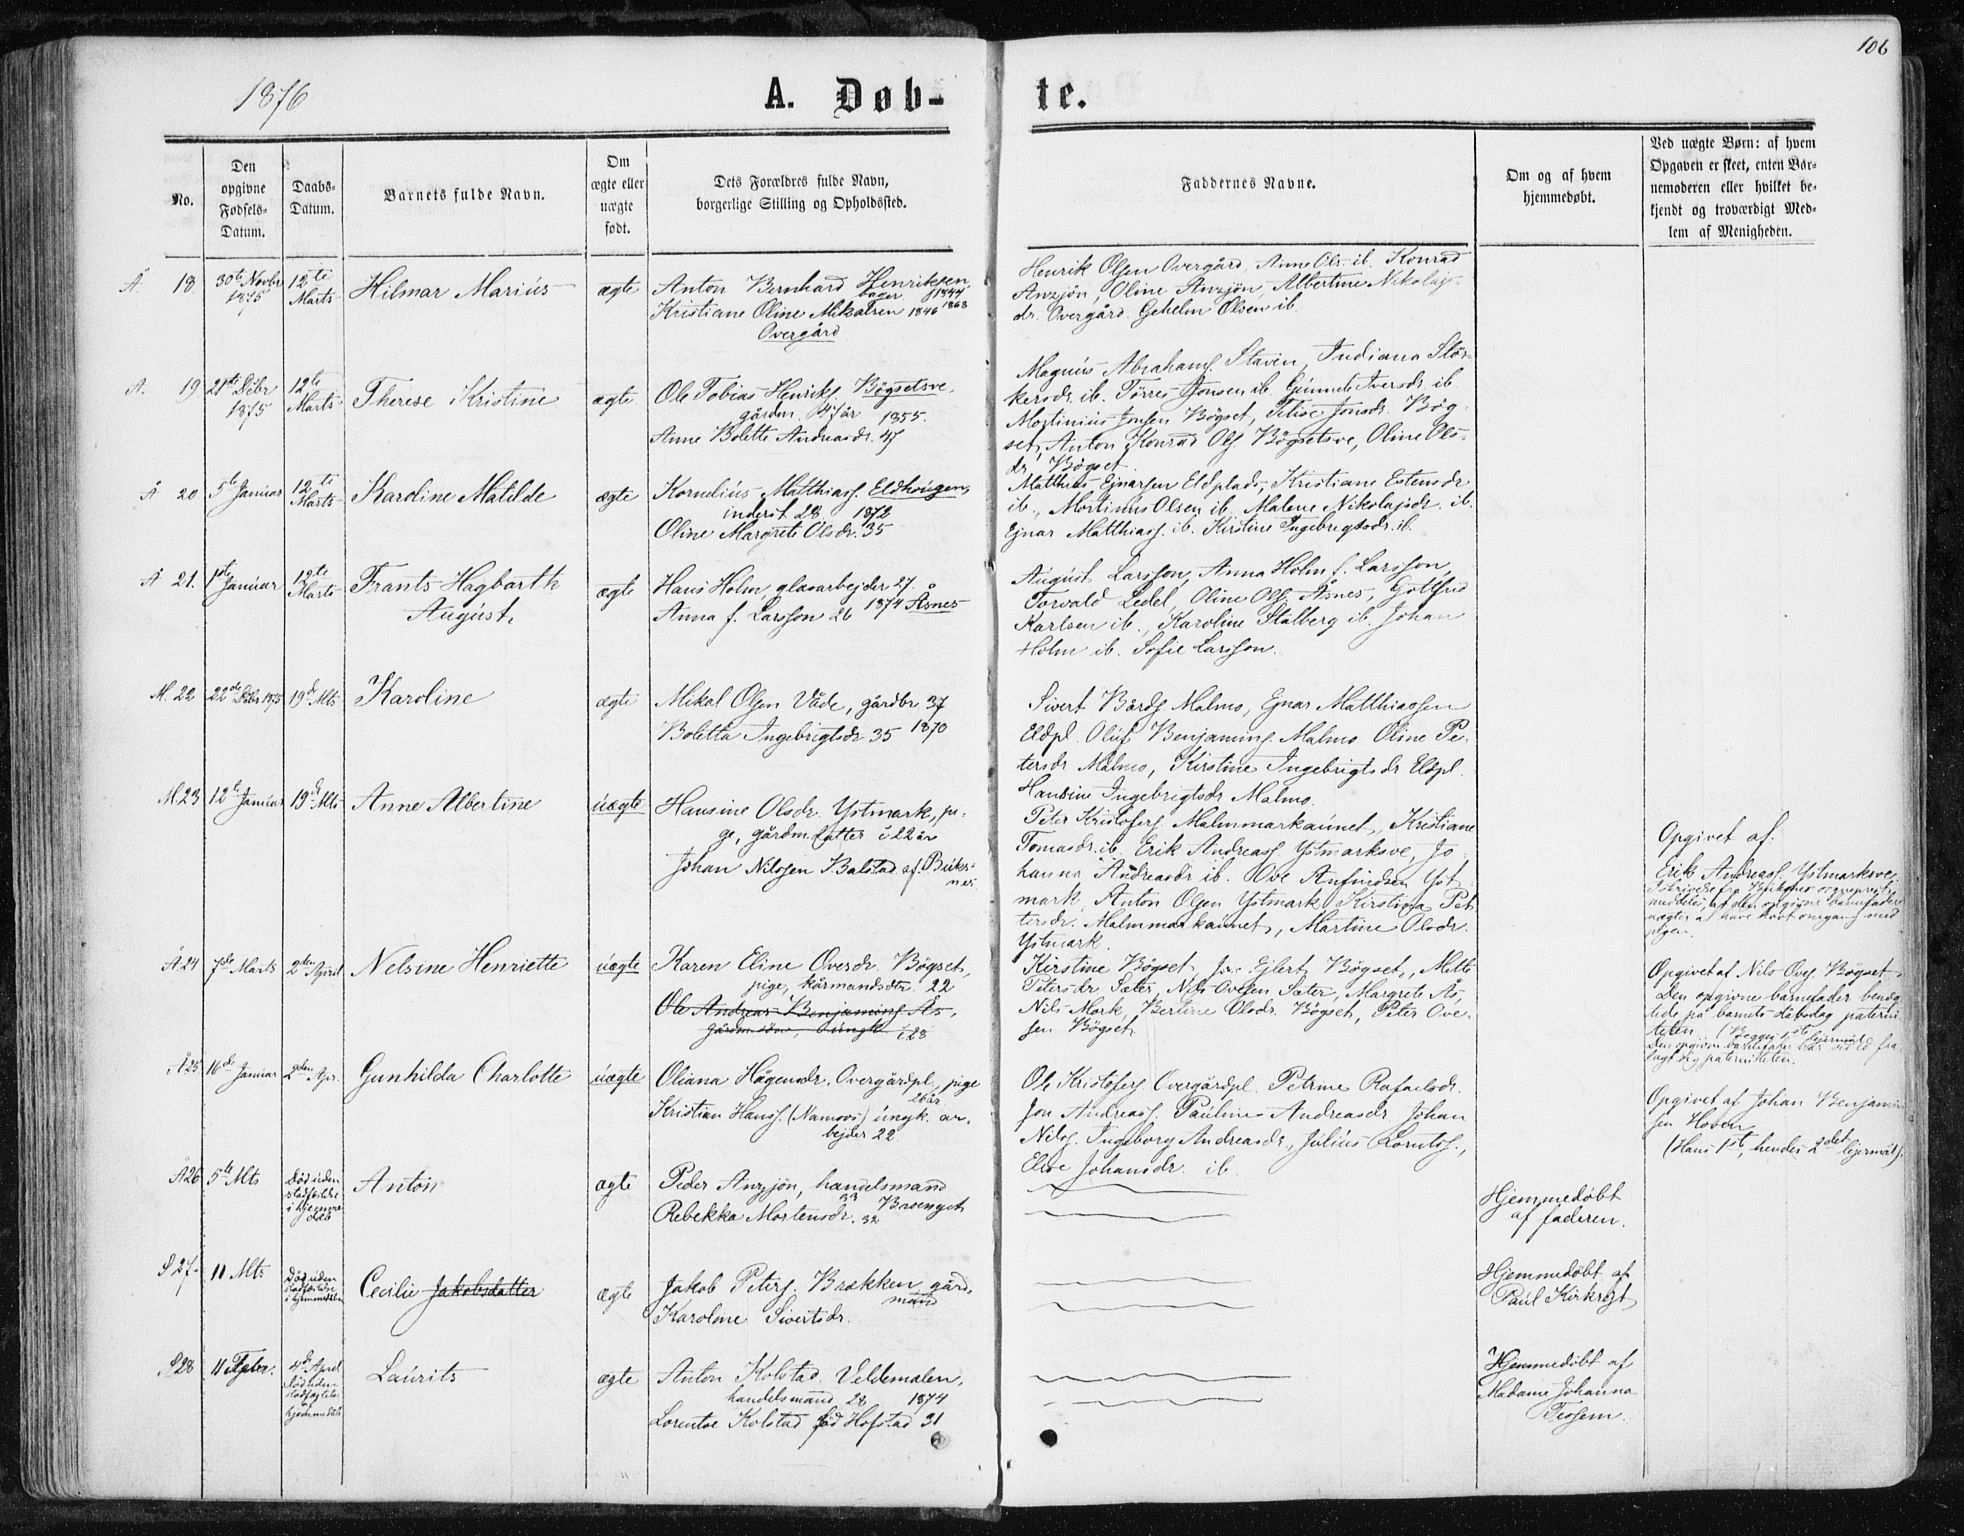 106
1876
A. Døb-
te.
No.
Den
opgivne
Fødsels-
Datum.
Daabs-
Datum.
Barnets fulde Navn.
Om
ægte eller
uægte
født.
Dets Forældres fulde Navn,
borgerlige Stilling og Opholdssted.
Faddernes Navne.
Om og af hvem
hjemmedøbt.
Ved uægte Børn: af hvem
Opgaven er skeet, enten Bar-
nemoderen eller hvilket be-
kjendt og troværdigt Med-
lem af Menigheden.
Å. 18. 30te Novbr
1875
12te
Marts
Hilmar Marius
ægte
Anton Bernhard Henriksen
1844
Kristiane Oline Mikalsen 1846 1868
Overgård
Henrik Olsen Overgård, Anne Ols. ib. Konrad
Anzjøn, Oline Anzjøn, Albertine Nikolajs-
dr. Overgård. Gehelm Olsen ib.
A. 19 21de Dcbr
1875
12te
Marts
Therese Kristine
ægte
Ole Tobias Henriks. Bøgsetsve.
gården. 47 år 1855.
Anne Bolette Andreasdr. 47
Magnus Abrahams. Staven, Indiana Stør-
kersdr. ib. Tørres Jonsen ib. Gunnele Iversdr. ib.
Mortinius Jonsen Bøgset, Jonsdr. Bøg-
set, Anton Konrad Ols. Bøgsetsve, Oline Ols-
dr. Bøgset.
Å 20 5te Januar
12te
Marts
Karoline Matilde
ægte
Kornelius Matthiass. Eldhaugen,
inderst 28 1872
Oline Margrete Olsdr. 35
Matthias Ejnarsen Eldplads, Kristiane Estensdr
ib., Mortinus Olsen ib, Malene Nikolajsdr. ib.
Ejnar Matthiass. ib. Kirstine Ingebrigtsdr. ib.
Å 21. 1ste Januar
12te
Marts
Frants Hagbarth
August.
ægte
Hans Holm, glasarbejder 27.
Anna f. Larsson 26 1874 Åsnes
August Larsson, Anna Holm f. Larsson,
Torvald Ledel, Oline Ols. Åsnes, Gottfrid
Karlsen ib., Karoline Stålberg ib. Johan
Holm ib. Sofie Larsson.
M. 22 22de Dcbr 1875
19de Mts
Karoline
ægte
Mikal Olsen Våde, gårdbr 37
Boletta Ingebrigtsdr 35 1870
Sivert Bårds. Malmo, Ejnar Matthiassen
Eldpl. Oluf Benjamins. Malmo Oline Pe-
tersdr Malmo, Kirstine Ingebrigtsdr Eldpl.
Hansine Ingebrigtsdr Malmo.
M. 23 12te Januar
19de Mts
Anne Albertine
uægte
Hansine Olsdr. Ystmark, pi-
ge, gårdmdatter i 22 år
Johan Nilssen Balstad af Buks-
nes.
Peter Kristofers. Malmmarkaunet, Kristiane
Tomasdr. ib. Erik Andreass. Ystmarksve, Jo-
hanna Andreasdr ib. Ove Anfindsen Yst-
mark, Anton Olsen Ystmark Kirstina Pet-
tersdr. Malmmarkaunet, Martine Olsdr.
Ystmark.
Opgivet af:
Erik Andreass. Ystmarksve.
I skrivelse fra Buksnes sogneprest
meddeles, at den opgivne barnefader
nægter at have havt omgang med
pigen.
Å 24 7de Marts
2den April
Nelsine Henriette
uægte
Karen Eline Oversdr. Bøgset,
pige, kårmandsdtr. 22
Ole Andreas Benjamins. Ås,
gårdmsøn, ungk. i 28
Kirstine Bøgset, Ejlert Bøgset, Mette
Petersdr Sæter, Nils Ovesen Sæter, Margrete Ås,
Nils Mork, Bertine Olsdr. Bøgset, Peter Ove-
sen Bøgset
Opgivet af Nils Oves. Bøgset.
Den opgivne barnefader benæg-
tede på barnets dåbsdag paterni-
teten. (Begges 1ste lejermål
Den opgivne barnefader har ved ed fra-
lagt sig paterniteten.
Å 25 16de Januar
2den Apr.
Gunhilda Charlotte
uægte
Oliana Hågensdr. Overgårdpl, pige
26 år
Kristian Hanss. (Namsos) ungk. ar-
bejder 22.
Ole Kristofers. Overgårdpl. Petrine Rafaelsdr.
Jon Andreass. Pauline Andreasdr Johan
Nils. Ingeborg Andreasdr., Julius Lornts.,
Else Johansdr. ib.
Opgivet af Johan Benjamin-
sen Hoven.
(Hans 1ste, hendes 2det lejermål).
Å 26 5te Mts
Død uden
stadfæstelse
i hjemme
dåb
Anton
ægte
Peder Anzjøn, handelsmand
33
Rebekka Mortensdr. 32
Hjemmedøbt
af faderen.
S 27. 11 Mts
Død uden
stadfæstelse
i hjemmedåben
Cecilie Jakobsdatter
ægte
Jakob Peters. Brækken gård-
mand
Karoline Sivertsdr.
Hjemmedøbt af
Paul Kirkrejt
S 28 11
4de April
Død uden
stadfæstelse
af
hjemmedåb
Laurits
ægte
Anton Kolstad. Veldemalen,
handelsmand 28 1874
Lorentse Kolstad fød Hofstad 31
Hjemmedøbt af
Madame Johanna
Tessem.